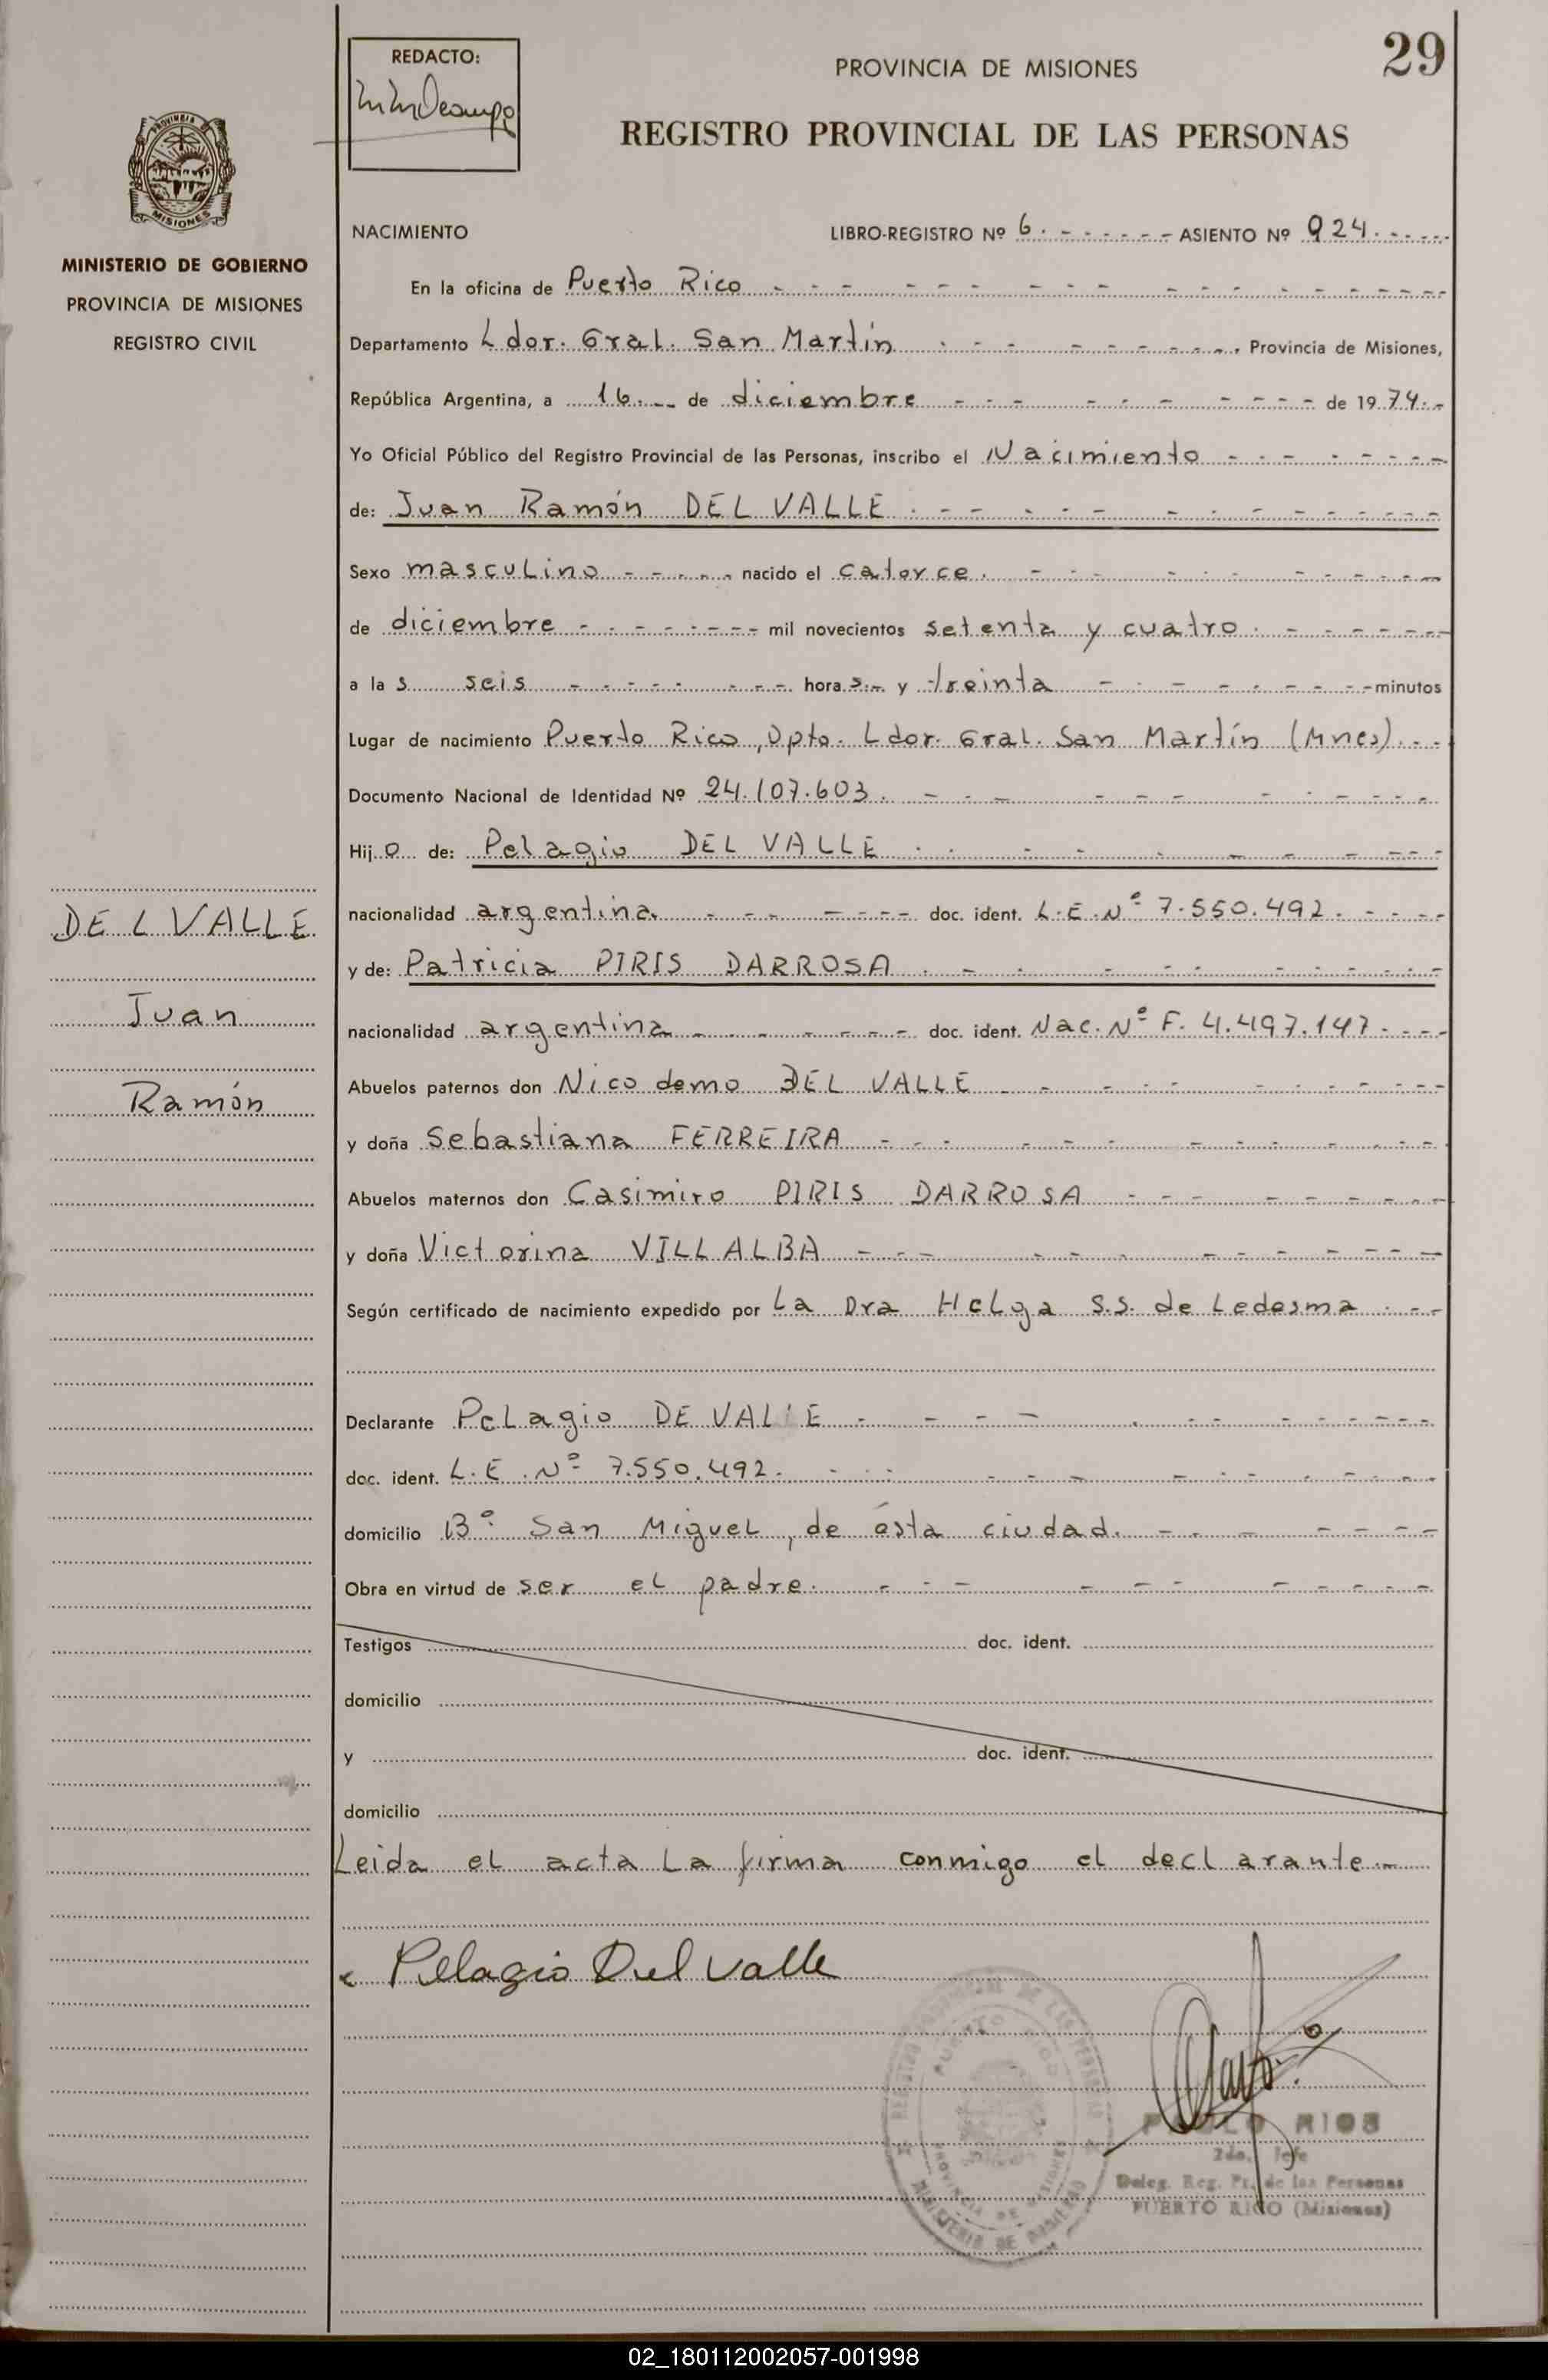 29
REDACTO:
PROVINCIA DE MISIONES
REGISTRO PROVINCIAL DE LAS PERSONAS
PROVINCIA DE
MISIONES
MINISTERIO DE GOBIERNO
PROVINCIA DE MISIONES
REGISTRO CIVIL
NACIMIENTO LIBRO-REGISTRO Nº 6. ASIENTO Nº 924.
En la oficina de Puerto Rico
Departamento Ldor. Gral. San Martín , Provincia de Misiones,
República Argentina, a 16. de diciembre de 1974.
Yo Oficial Público del Registro Provincial de las Personas, inscribo el Nacimiento
de: Juan Ramón DEL VALLE
Sexo masculino nacido el catorce.
de diciembre mil novecientos setenta y cuatro.
a las seis horas y treinta minutos
Lugar de nacimiento Puerto Rico, Dpto. Ldor. Gral. San Martín (Mnes).
Documento Nacional de Identidad Nº 24.107.603.
Hijo de: Pelagio DEL VALLE
nacionalidad argentina. doc. ident. L.E. Nº 7.550.492.
y de: Patricia PIRIS DARROSA
nacionalidad argentina doc. ident. Nac. Nº F. 4.497.147.
Abuelos paternos don Nicodemo DEL VALLE
y doña Sebastiana FERREIRA
Abuelos maternos don Casimiro PIRIS DARROSA
y doña Victorina VILLALBA
Según certificado de nacimiento expedido por La Dra Helga S.S. de Ledesma
Declarante Pelagio DE VALLE
doc. ident. L.E. Nº 7.550.492.
domicilio Bº San Miguel, de ésta ciudad.
Obra en virtud de ser el padre.
Testigos doc. ident.
domicilio
y doc. ident.
domicilio
Leida el acta La firma conmigo el declarante
Pelagio Del Valle
DEL VALLE
Juan
Ramón
REGISTRO PROVINCIAL DE LAS PERSONAS
PUERTO RICO
PROVINCIA DE MISIONES
MINISTERIO DE GOBIERNO
RIOS
2do. Jefe
Deleg. Reg. Pr. de las Personas
PUERTO RICO (Misiones)
02_180112002057-001998